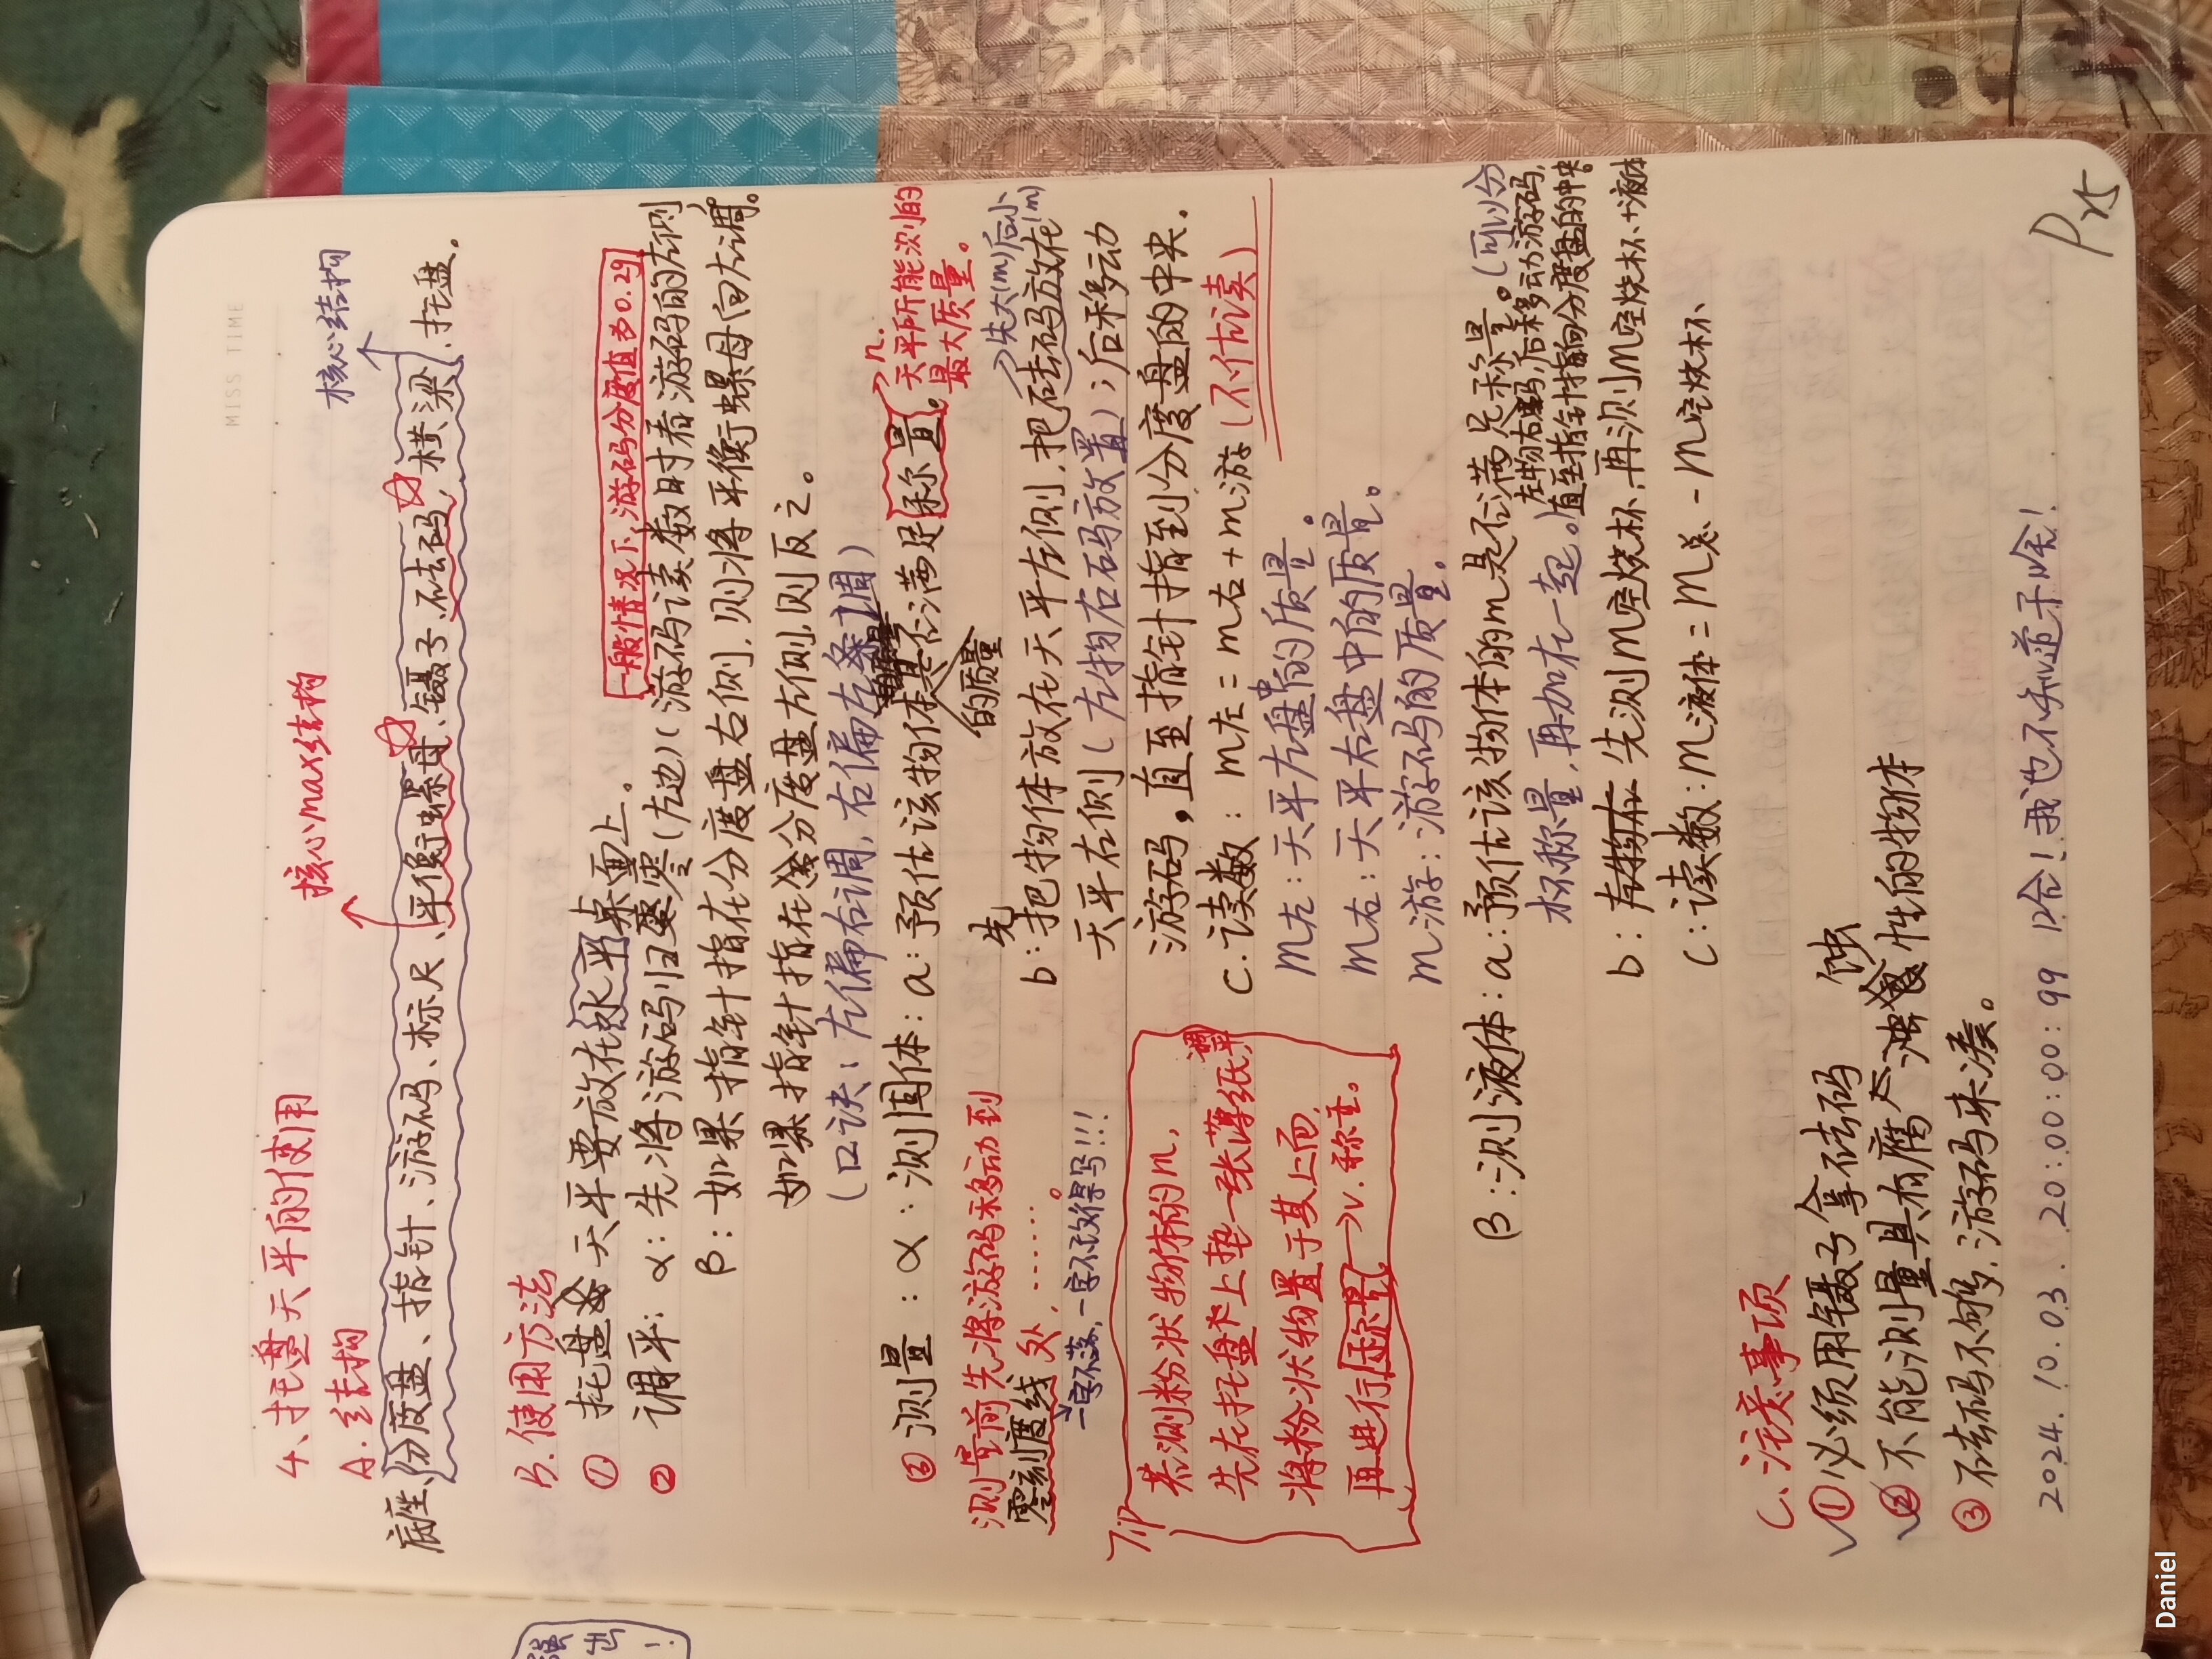 MISS TIME
4、托盘天平的使用
核心max结构
核心结构
A.结构
底座、分度盘、指针、游码、标尺、平衡螺母、镊子、砝码、横梁、托盘。
B.使用方法
① 托盘天平要放在水平桌面上。
一般情况下,游码分度值为0.2g
② 调平: α:先将游码归零(左边)(游码读数时看游码的左侧)
β:如果指针指在分度盘右侧,则将平衡螺母向左调。
如果指针指在分度盘左侧,则反之。
(口诀:左偏右调,右偏左调)
③ 测量: α:测固体: a:预估该物体的质量是否满足称量。
n.
天平所能测的
最大质量。
测量前先将游码移动到
零刻度线处,……。
一字不落,一字不改得写!!!
先大(m)后小(m)
b:先把物体放在天平左侧,把砝码放在
天平右侧(左物右码放置);后移动
游码。直至指针指到分度盘的中央。
c:读数: m左=m右+m游(不估读)
m左:天平左盘中的质量。
m右:天平右盘中的质量。
m游:游码的质量。
Tip
若测粉状物体的m,
先在托盘上垫一张薄纸,
将粉状物置于其上而,
再进行称量。→v.称重。
β:测液体: a:预估该物体的m是否满足称量。(可以分
杯称量,再加在一起。)
左物右码,后移动游码,
直至指针指向分度盘的中央。
b: 先测m空烧杯,再测m空烧杯+液体
c:读数:m液体=m总-m空烧杯
C.注意事项
①必须用镊子拿砝码
②不能测量具有腐蚀性的物体
③砝码不够,游码来凑。
2024.10.03.20:00:00:99 哈!我也不知道了啥!
P25
Daniel